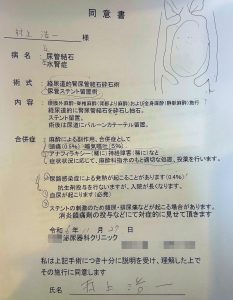 同意書
村上浩一 様
病名 尿管結石
水腎症
術式:経尿道的腎尿管結石砕石術
尿管ステント留置術
内容:腰椎(脊椎麻酔)及び全身麻酔(静脈麻酔)施行
経尿道的に腎尿管結石を砕石し抽石。
ステント留置。
術後は尿道にバルーンカテーテル留置。
合併症:麻酔による副作用、合併症として
頭痛(0.5%) 嘔気嘔吐(5%)
アナフィラキシー(稀)
症状状況に応じて、麻酔科指示のもと適切な処置、投薬を行います。
尿路感染症による発熱が起こることがあります(0.4%)
抗生剤投与を行ないますが、入院が長くなります。
血尿が起こります(必発)
ステントの刺激のため頻尿・排尿痛などが起こる場合があります。
消炎鎮痛剤の投与などにて対症的に見せて頂きます
令和 年 11月27日
泌尿器科クリニック
私は上記手術につき十分に説明を受け、理解した上で
その施行に同意します
氏名 村上浩一